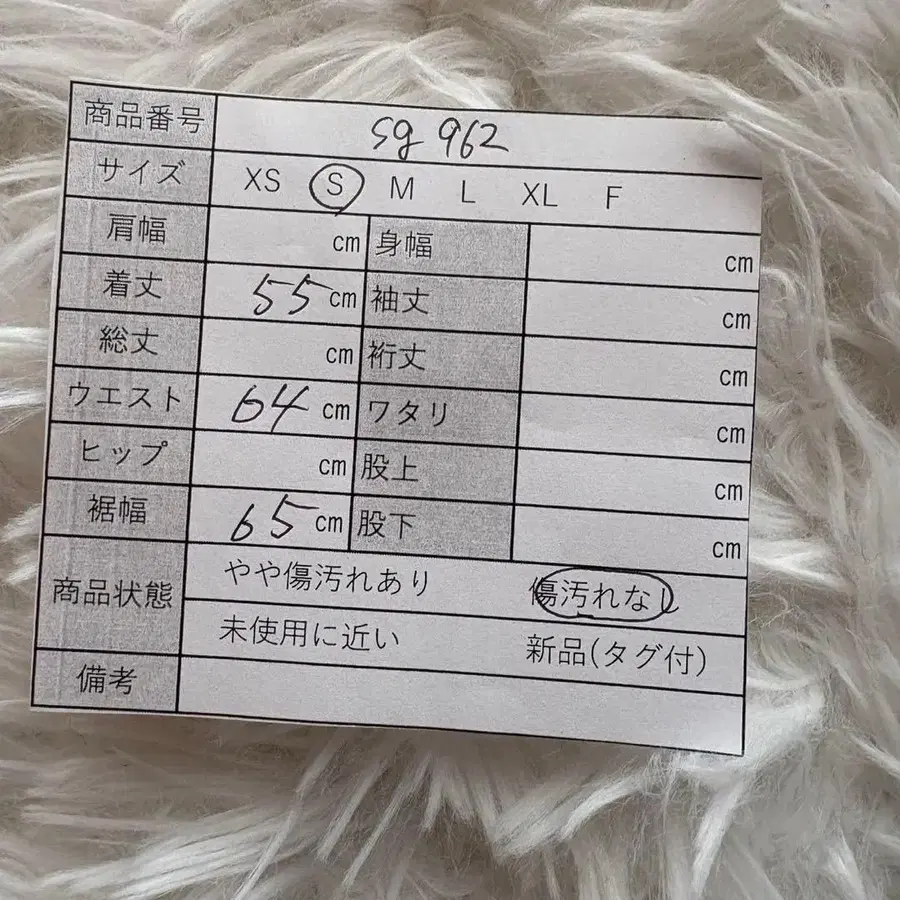 商品番号 sg 962
サイズ XS S M L XL F
肩幅 cm 身幅 cm
着丈 55 cm 袖丈 cm
総丈 cm 裄丈 cm
ウエスト 64 cm ワタリ cm
ヒップ cm 股上 cm
裾幅 65 cm 股下 cm
商品状態 やや傷汚れあり 傷汚れなし
未使用に近い 新品(タグ付)
備考